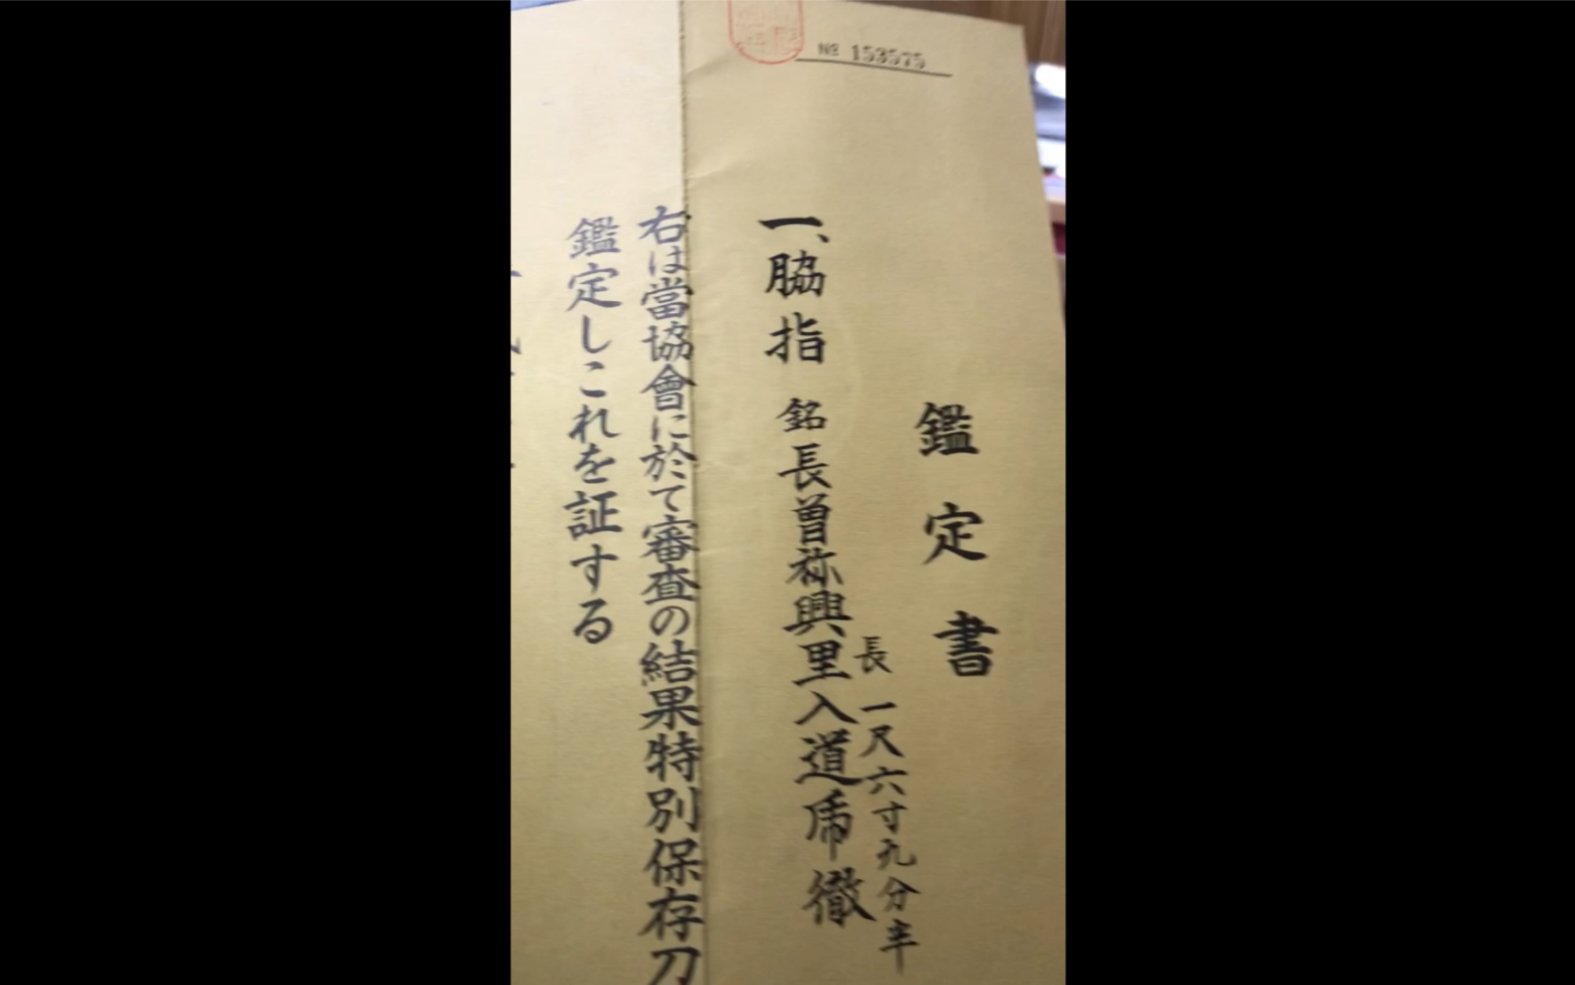 № 153575
鑑定書
一、脇指 銘長曽祢興里入道乕徹
長一尺六寸九分半
右は當協會に於て審査の結果特別保存刀
鑑定しこれを証する